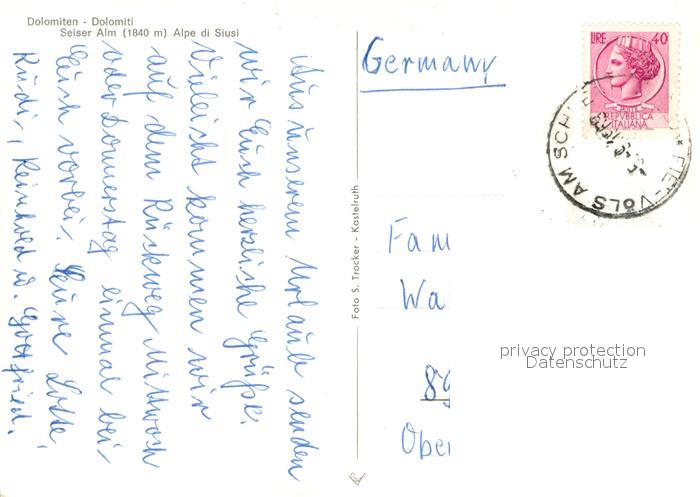 Dolomiten - Dolomiti
Seiser Alm (1840 m) Alpe di Siusi
Aus unserem Urlaub senden
wir Euch herzliche Grüße.
Vieleicht kommen wir
auf dem Rückweg Mittwoch
oder Donnerstag einmal bei
Euch vorbei. Eure Lotte,
Rudi, Reinhold u. Gottfried.
Foto S. Trocker - Kastelruth
Germany
LIRE 40
REPVBBLICA
ITALIANA
FIE'-VÖLS AM SCH
Fam
Wa
89
Ober
privacy protection
Datenschutz